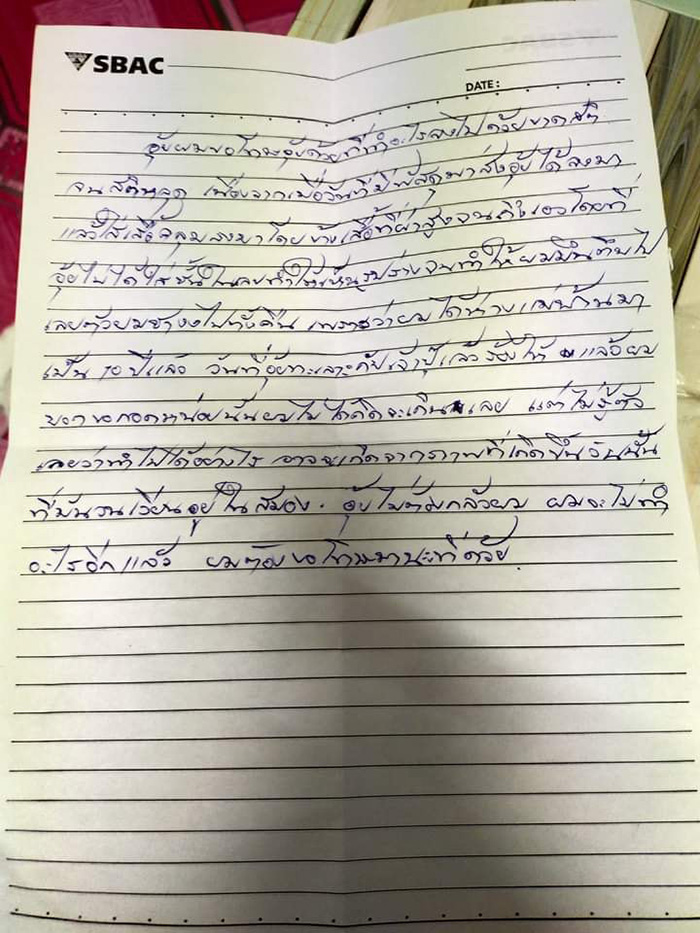 SBAC
DATE :
อุ้ยผมขอโทษอุ้ยด้วยที่ทำอะไรลงไปด้วยขาดสติ
จนสติหลุด เนื่องจากเมื่อวันที่มีพัสดุมาส่งอุ้ยได้ลงมา
แล้วใส่เสื้อคลุมลงมาโดยข้างเสื้อที่ผ่าสูงจนถึงเอวโดยที่
อุ้ยไม่ได้ใส่ชั้นในเลยทำให้เห็นรูปร่างจนทำให้ผมมึนตึบไป
เลยตัวผมช้างงไปทั้งคืน เพราะว่าผมได้ห่างแม่บ้านมา
เป็น 10 ปีแล้ว วันที่อุ้ยทะเลาะกับเจ้าปุ๊แล้วร้องไห้ แล้วผม
บอกขอกอดหน่อยนั้นผมไม่ได้คิดจะเกินเลย แต่ไม่รู้ตัว
เลยว่าทำไปได้อย่างไร อาจจะเกิดจากภาพที่เกิดขึ้นวันนั้น
ที่มันวนเวียนอยู่ในสมอง. อุ้ยไม่ต้องกลัวผม ผมจะไม่ทำ
อะไรอีกแล้ว ผมต้องขอโทษมาณะที่ด้วย